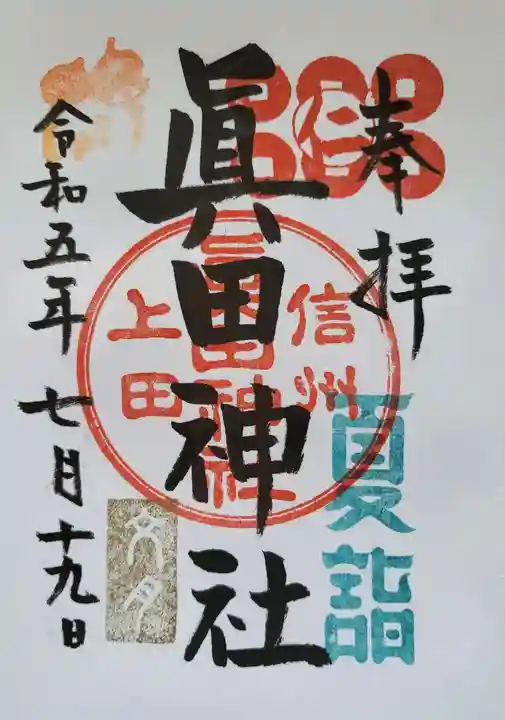 奉拝
夏詣
信州
眞田神社
上田
眞田神社
文月
令和五年七月十九日